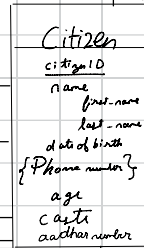 Citizen
citizenID
name
first_name
last_name
date of birth
{Phone number}
age
caste
aadhar number